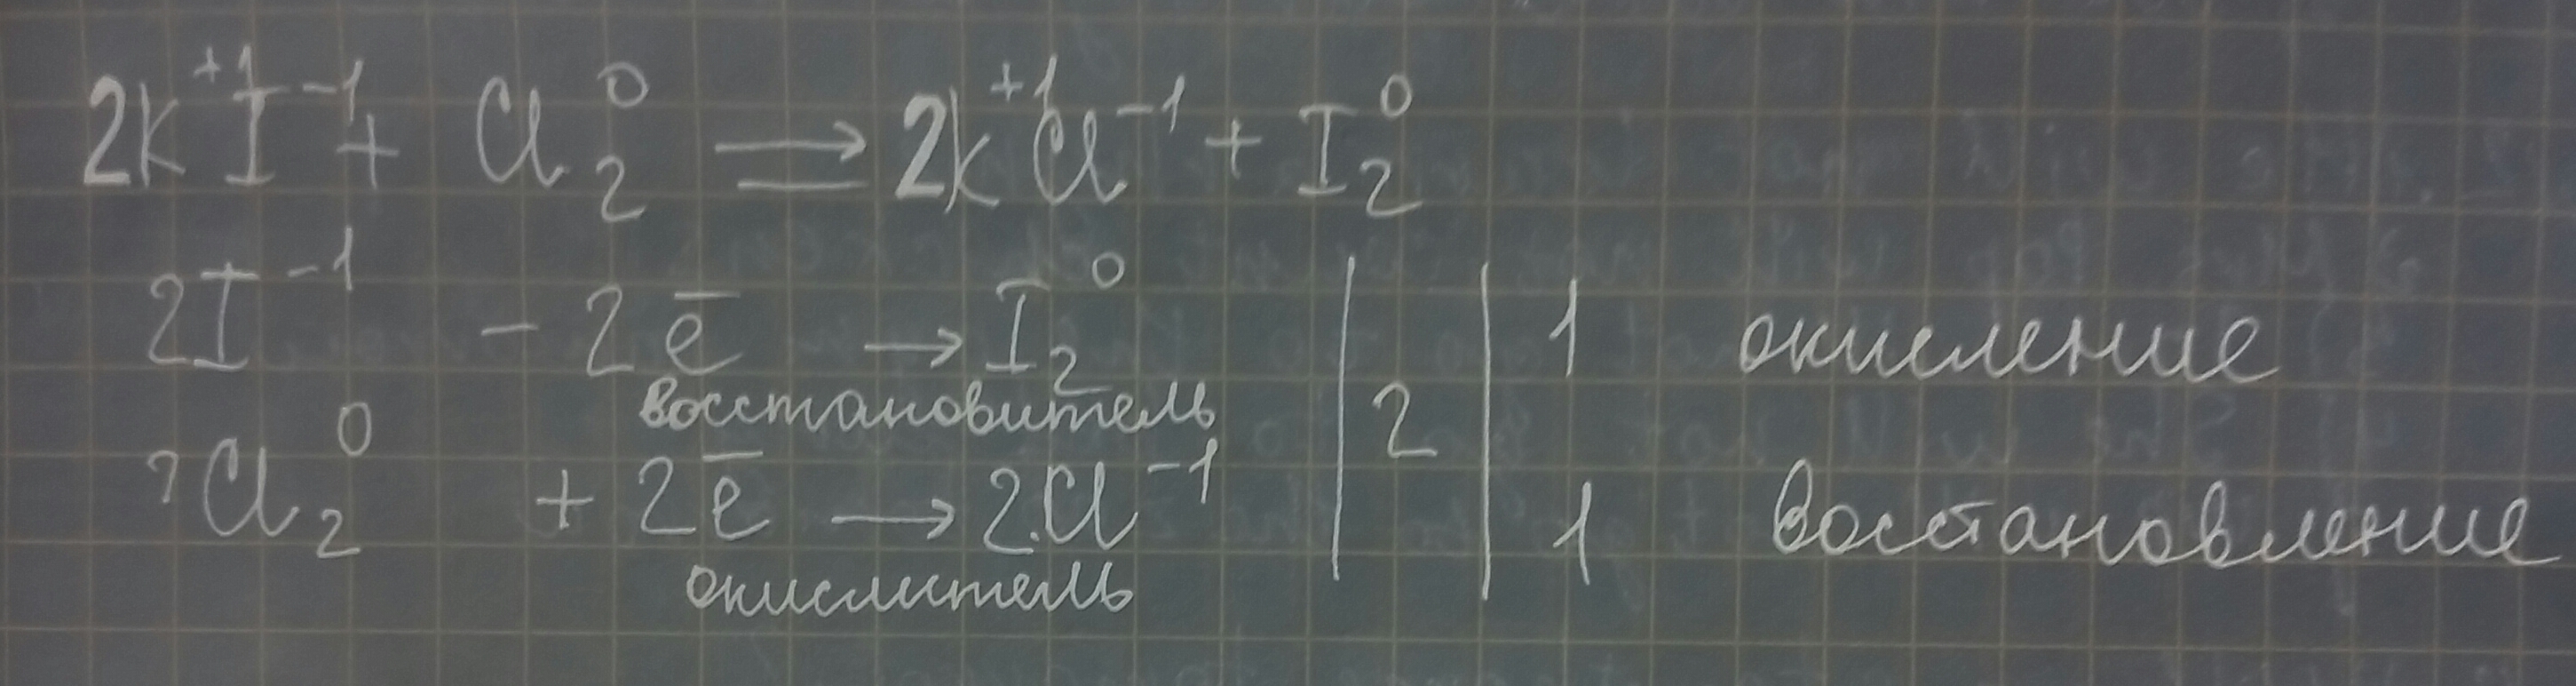 2K⁺¹I⁻¹ + Cl₂⁰ ⇒ 2K⁺¹Cl⁻¹ + I₂⁰
2I⁻¹ − 2ē → I₂⁰ | | 1 окисление
восстановитель | 2 |
Cl₂⁰ + 2ē → 2Cl⁻¹ | | 1 восстановление
окислитель